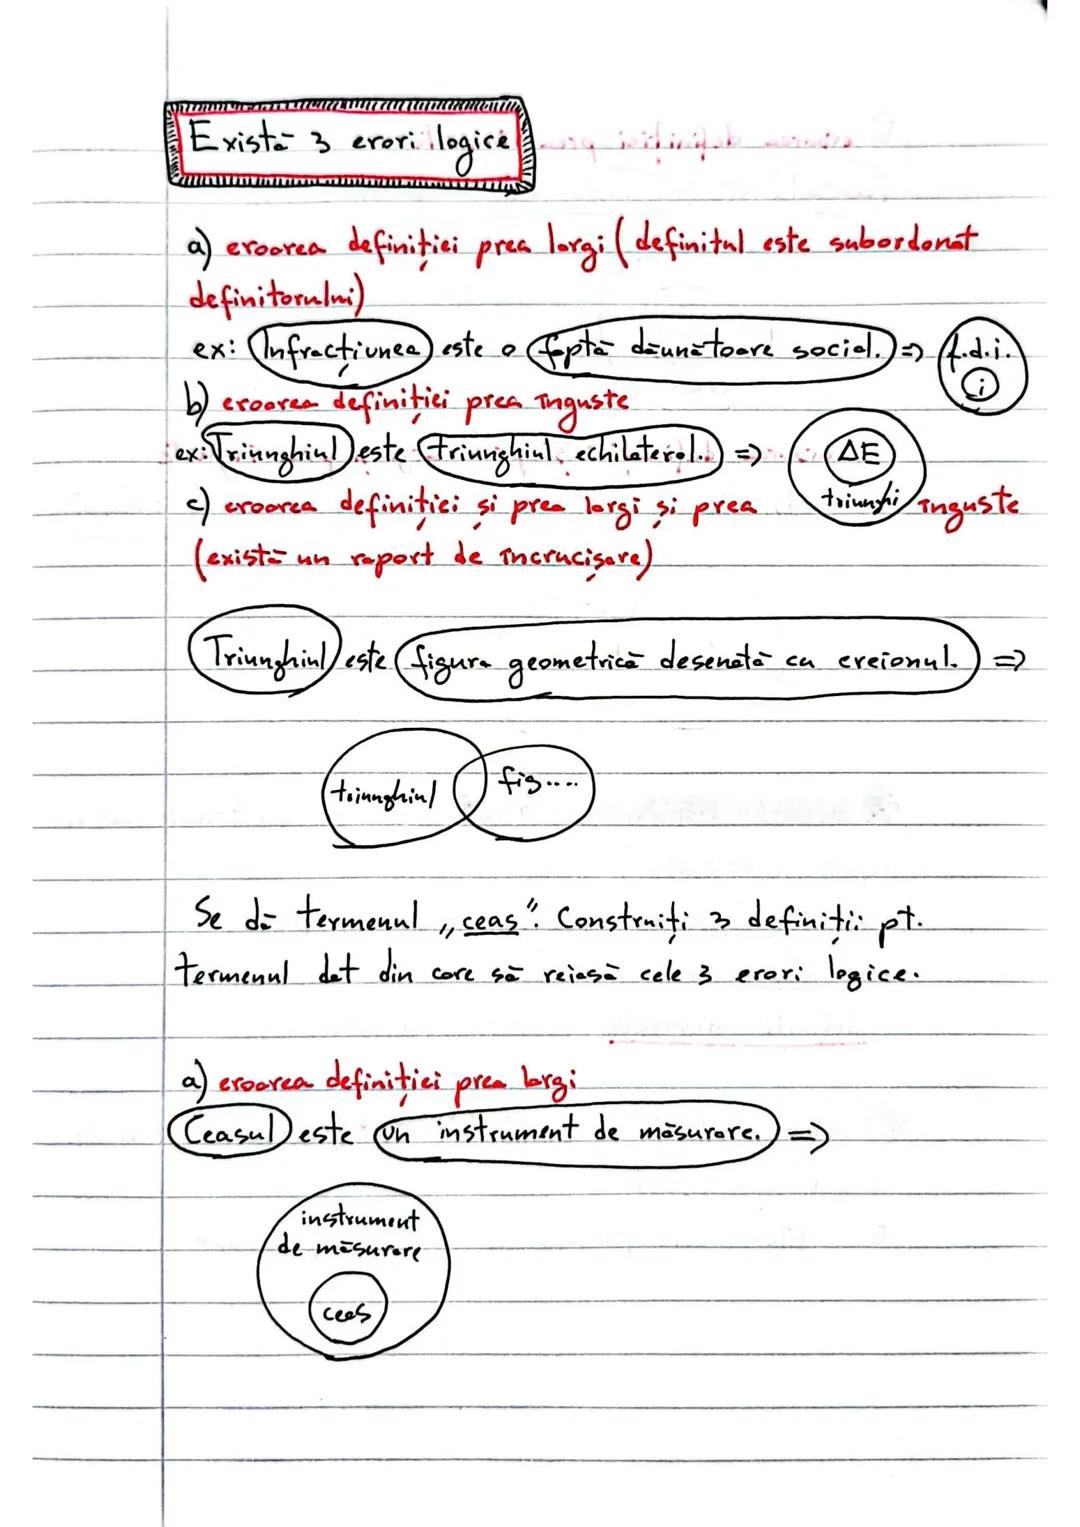 Există 3 erori logice
a) eroarea definiției prea largi (definitul este subordonat
definitorului)
ex: Infracțiunea este o faptă dăunătoare social. => f.d.i.
i
b) eroarea definiției prea înguste
ex: Triunghiul este triunghiul echilateral. => ΔE
triunghi
c) eroarea definiției și prea largi și prea înguste
(există un raport de încrucișare)
Triunghiul este figura geometrică desenată cu creionul. =>
triunghiul fig....
Se dă termenul „ceas”. Construiți 3 definiții pt.
termenul dat din care să reiasă cele 3 erori logice.
a) eroarea definiției prea largi
Ceasul este un instrument de măsurare. =>
instrument
de măsurare
ceas